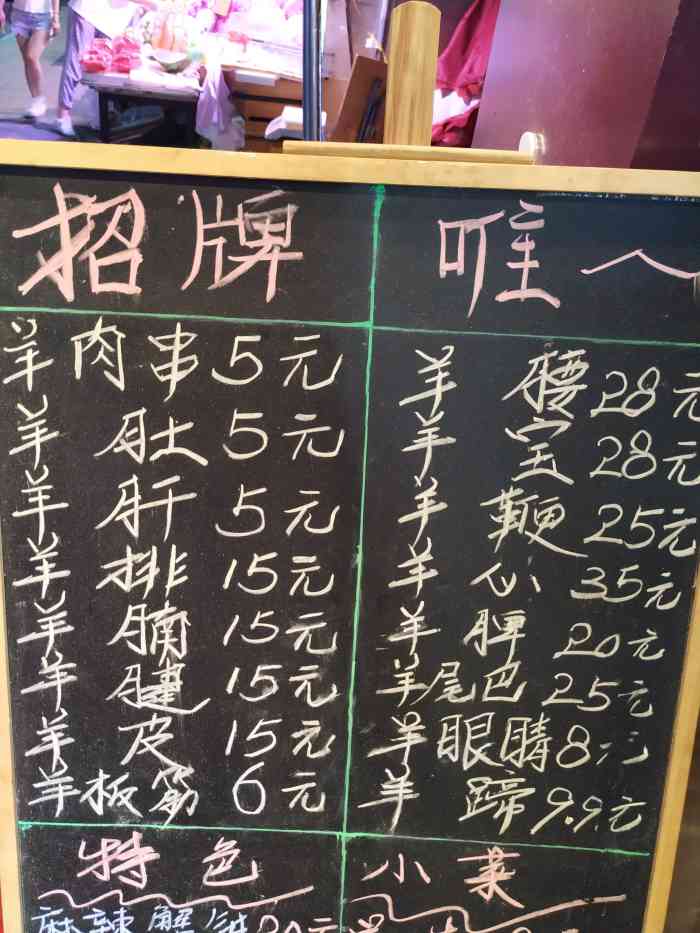 招牌
羊肉串5元
羊肚5元
羊肝5元
羊排15元
羊腩15元
羊腱15元
羊皮15元
羊板筋6元
唯一
羊腰28元
羊宝28元
羊鞭25元
羊心35元
羊脾20元
羊尾巴25元
羊眼睛8元
羊蹄9.9元
特色
麻辣蟹
小菜